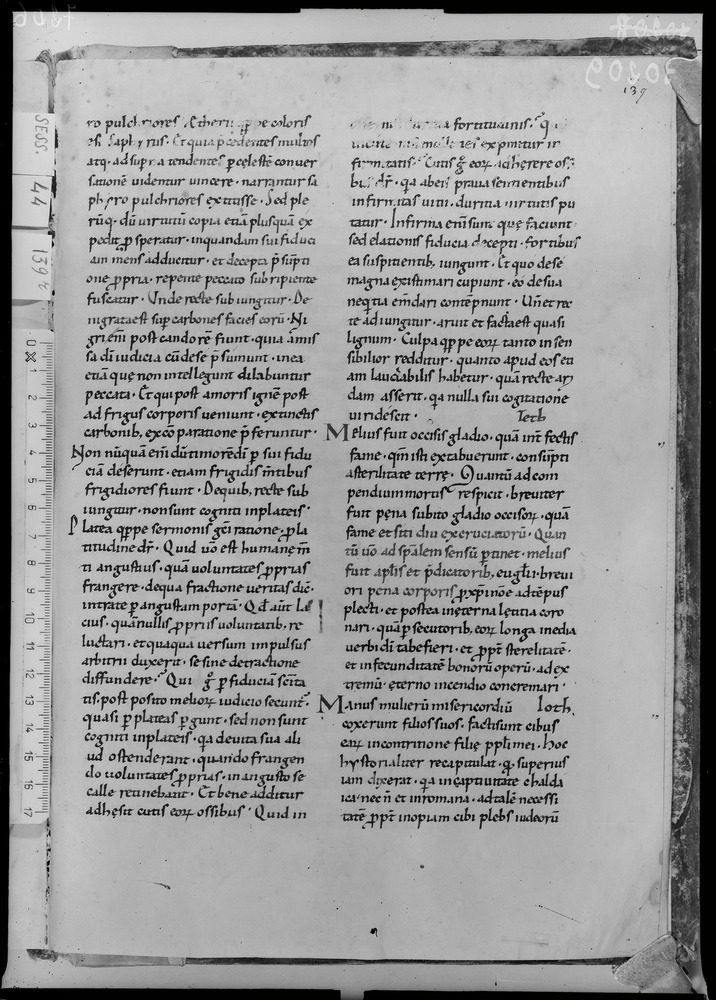 139
ro pulchriores. Etheri qͥppe coloris
est saphyrus. Et quia p̄cedentes multos
atq; ad supna tendentes p celestē conuer
sationē uidentur uincere. narrantur sa
phyro pulchriores extitisse. Sed ple
rūq; dū uirtutū copia etiā plusquā ex
pedit p̱speratur. inquandam sui fiduci
am mens adducitur. et decepta p̄sūpti
one p̱pria. repente peccato subripiente
fuscatur. Unde recte subiungitur. De
nigrata est sup carbones facies eorū. Ni
gri em̄ post candorē fiunt. quia amis
sa dī iudicia cū de se p̄sumunt. in ea
etiā quę non intellegunt dilabuntur
peccata. Et qui post amoris ignē post
ad frigus corporis ueniunt. extinctis
carbonib; ex cōparatione p̄feruntur.
Non nūquā em̄ dū timorē dī p sui fidu
ciā deserunt. etiam frigidis m̄tibus
frigidiores fiunt. De quib; recte sub
iungitur. non sunt cogniti in plateis.
Platea qͥppe sermonis gͨci ratione. p̱ la
titudine dr̄. Quid uō est humanę m̄
ti angustius. quā uoluntates p̱prias
frangere. de qua fractione ueritas dic̄.
intrate p angustam portā. Qd̄ aūt la
cius. quā nullis p̱priis uoluntatib; re
luctari. et quaqua uersum impulsus
arbitrii duxerit. se sine detractione
diffundere. Qui gͦ p fiduciā scīta
tis. post posito meliorꝝ iudicio secunt᷑.
quasi p plateas pgunt. sed non sunt
cogniti in plateis. qa de uita sua ali
ud ostenderant. quando frangen
do uoluntates p̱prias. in angusto se
calle retinebant. Et bene additur
adhęsit cutis eorꝝ ossibus. Quid in
a fortitudinis.
exprimitur in
firmitatis. Cutis gͦ eorꝝ adherere ossi
bus dr̄. qa abeis praua sentientibus
infirmitas uitii. duritia uirtutis pu
tatur. Infirma em̄ sunt quę faciunt.
sed elationis fiducia decepti. fortibus
ea suspitientib; iungunt. Et quo de se
magna existimari cupiunt. eo de sua
neqͥtia em̄dari contēpnunt. Un̄ et rec
te adiungitur. aruit et facta est quasi
lignum. Culpa qͥppe eorꝝ tanto insen
sibilior redditur. quanto apud eos eti
am laudabilis habetur. quā recte ari
dam asserit. qa nulla sui cogitatione
uiridescit. Teth
Melius fuit occisis gladio. quā int̄fectis
fame. qm̄ isti extabuerunt. consūpti
a sterilitate terrę. Quantū ad com
pendium mortis respicit. breuiter
fuit pęna subito gladio occisorꝝ. quā
fame et siti diu excruciatorū. Quan
tū uō ad sp̄alem sensū ptinet. melius
fuit aplīs et p̄dicatorib; eugl̄ii. breui
ori pęna corporis p̱ xp̄i nōe ad tēpus
plecti. et postea in ęterna lętitia coro
nari. quā psecutorib; eorꝝ longa inedia
uerbi dī tabefieri. et p̱pt̄ sterelitatē.
et infecunditatē bonorū operū. ad ex
tremū ęterno incendio concremari.
Manus mulierū misericordiū Ioth
coxerunt filios suos. facti sunt cibus
earꝝ in contritione filię ppl̄i mei. Hoc
hystorialiter recapitulat. qd superius
iam dixerat. qa in captiuitate chalda
ica nec n̄ et in romana. ad talē necessi
tatē p̱pt̄ inopiam cibi plebs iudeorū
SESS.
44
139 r
0 1 2 3 4 5 6 7 8 9 10 11 12 13 14 15 16 17